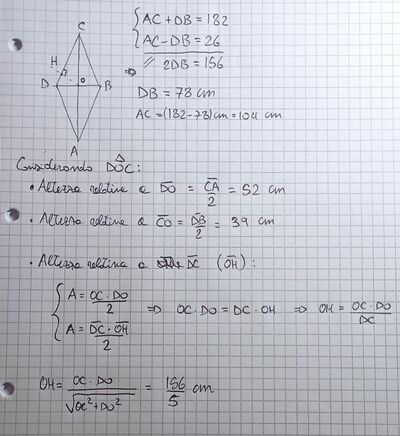 C
H
D
O
B
A
{ AC + DB = 182
AC - DB = 26
// 2DB = 156
⇒ DB = 78 cm
AC = (182-78) cm = 104 cm
Considerando DÔC:
• Altezza relativa a DO = CA/2 = 52 cm
• Altezza relativa a CO = DB/2 = 39 cm
• Altezza relativa a DC (OH):
{ A = OC · DO / 2 ⇒ OC · DO = DC · OH ⇒ OH = OC · DO / DC
A = DC · OH / 2
OH = OC · DO / √OC² + DO² = 156/5 cm